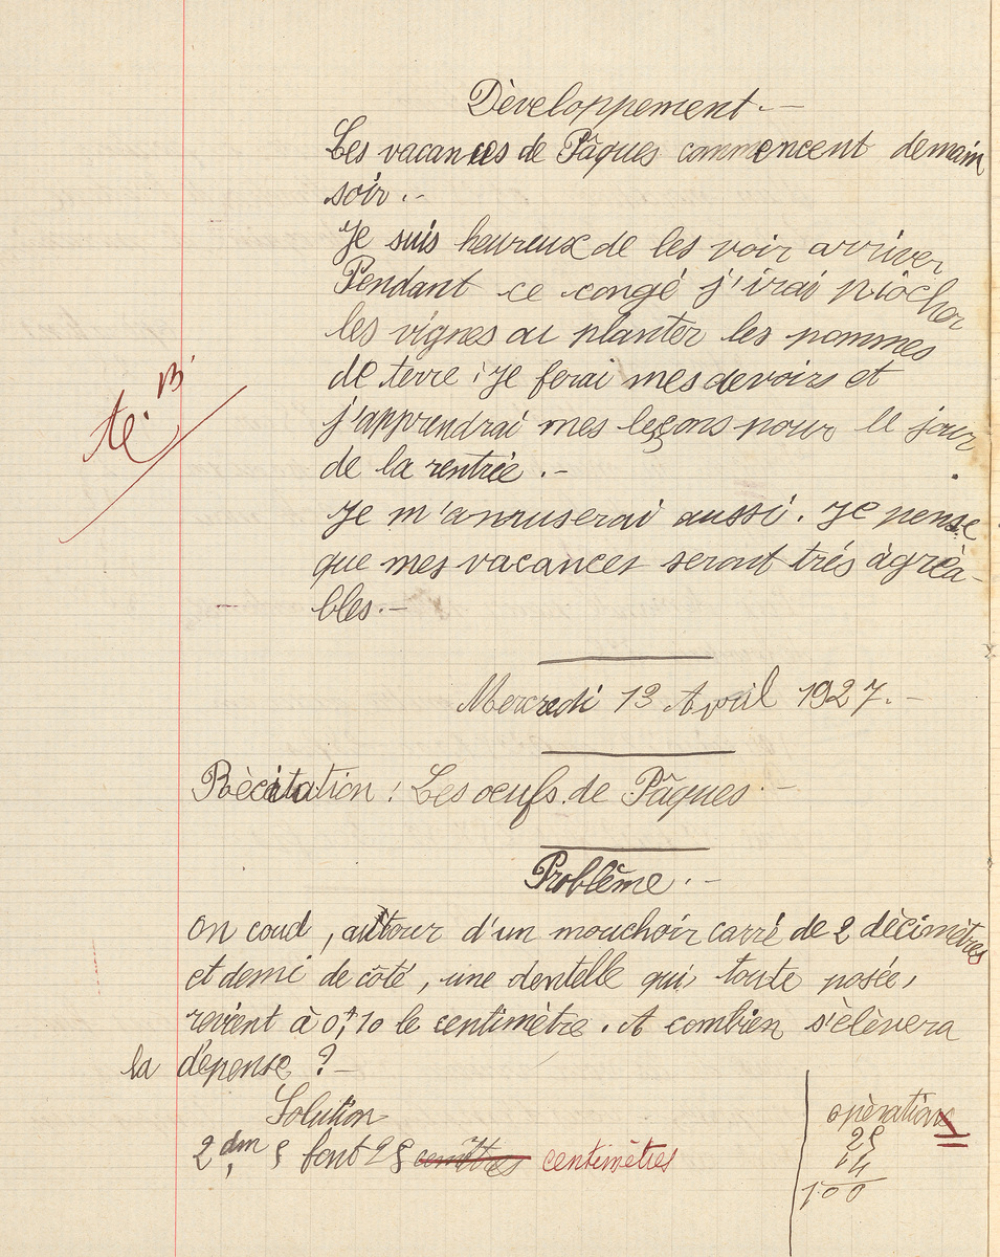 Dèveloppement.-
Les vacances de Pâques commencent demain
soir.-
Je suis heureux de les voir arriver
Pendant ce congé j'irai piocher
les vignes ou planter les pommes
de terre ; Je ferai mes devoirs et
j'apprendrai mes leçons pour le jour
T.B
de la rentrée.-
Je m'amuserai aussi. Je pense
que mes vacances seront trés àgrèa-
bles.-
Mercredi 13 Avril 1927.-
Rècitation : Les oeufs de Pâques.-
Problême.-
On coud, autour d'un mouchoir carré de 2 dècimètres
et demi de côté, une dentelle qui, toute posée,
revient à 0f,10 le centimètre. A combien s'èlèvera
la dépense ?-
Solution
2dm, 5 font 25 centimètres
opèrations
25
4
100